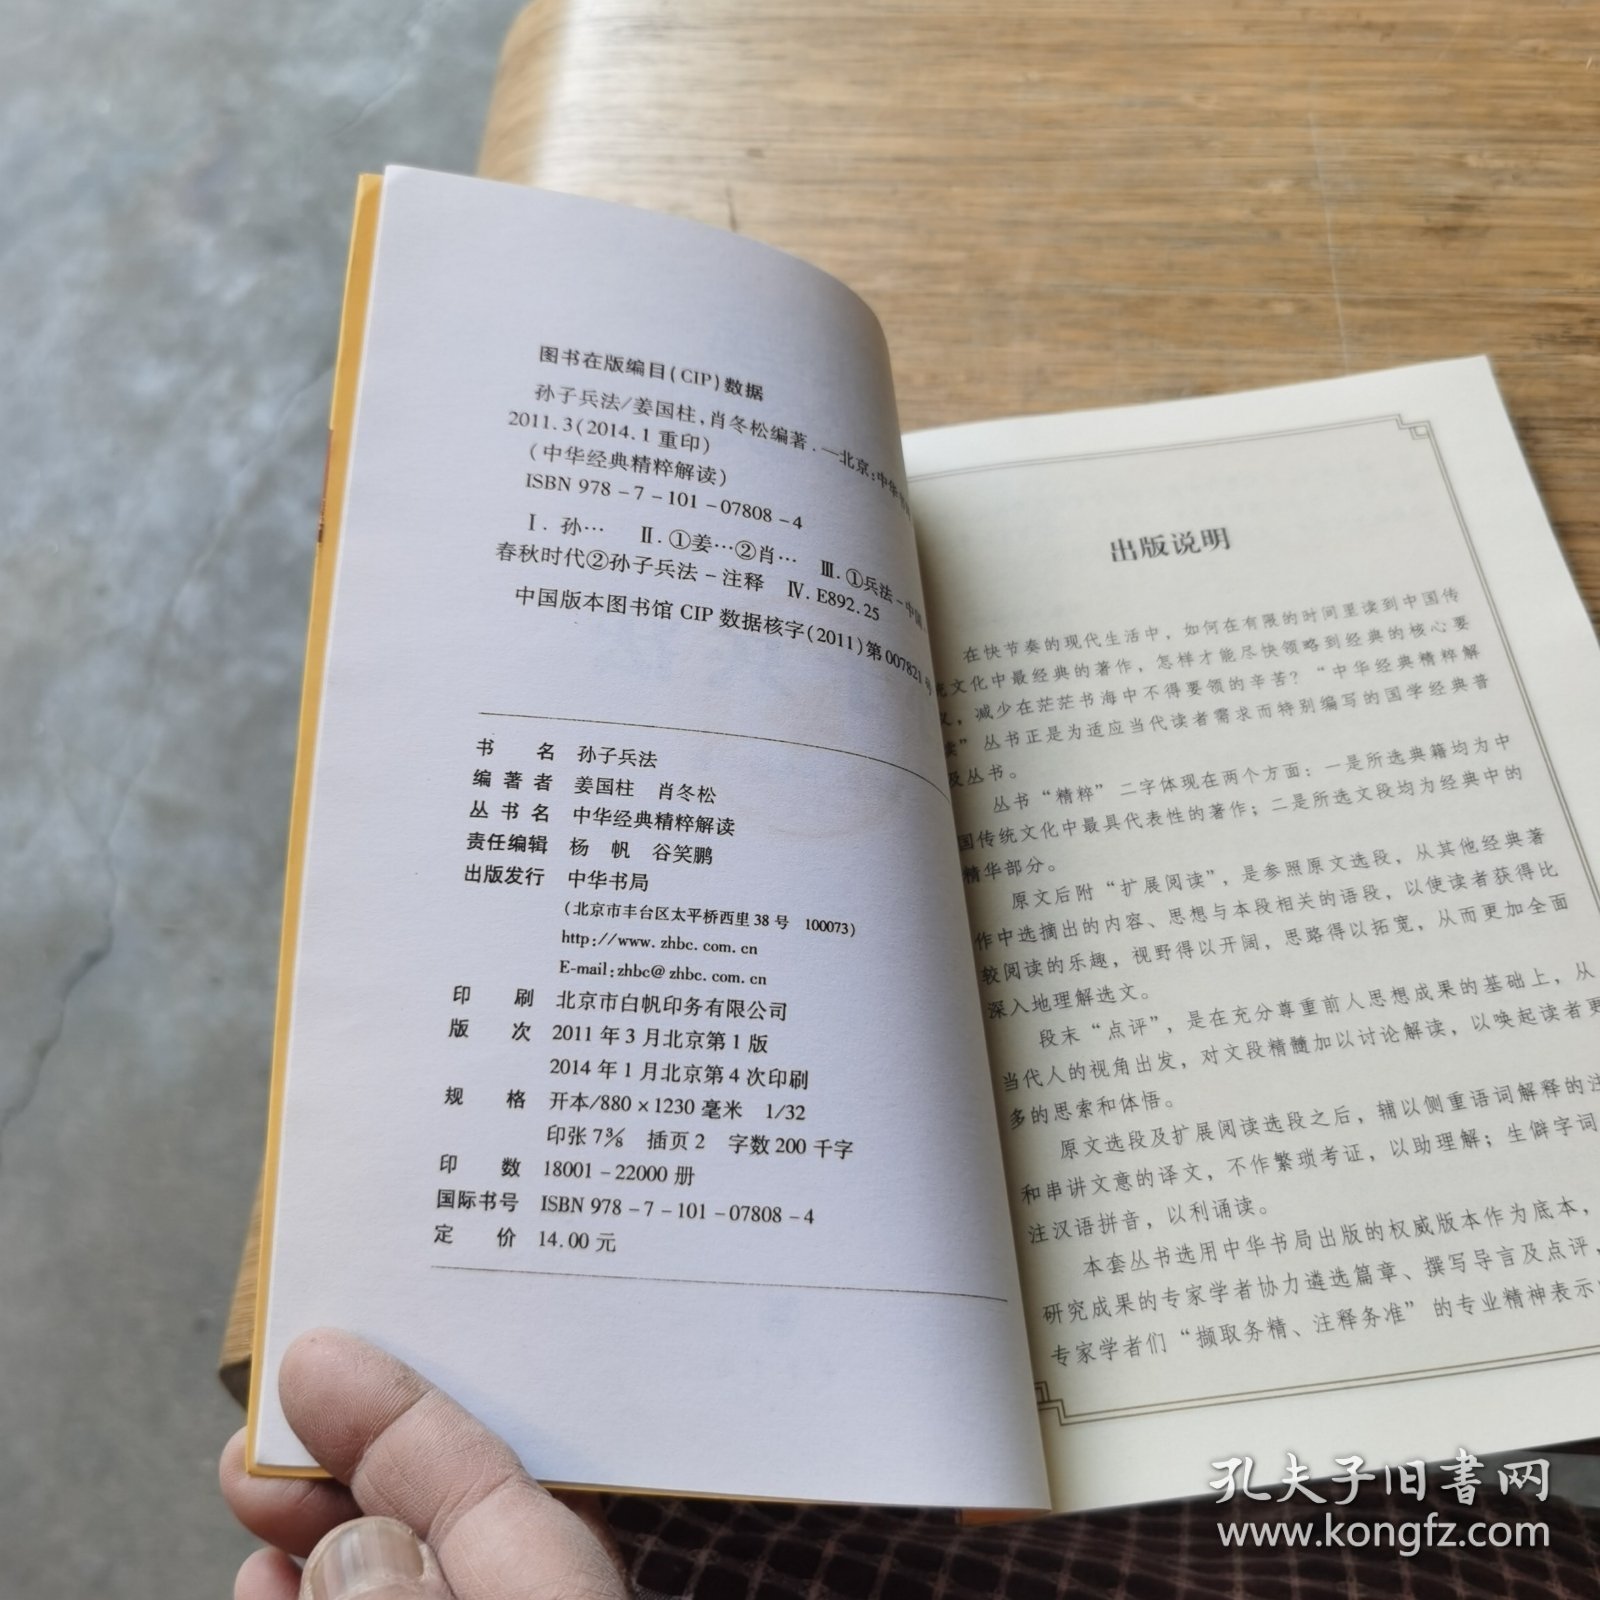 图书在版编目(CIP)数据
孙子兵法/姜国柱,肖冬松编著.—北京:中华书
2011.3(2014.1重印)
(中华经典精粹解读)
ISBN 978-7-101-07808-4
Ⅰ.孙… Ⅱ.①姜…②肖… Ⅲ.①兵法-中国
春秋时代②孙子兵法-注释 Ⅳ.E892.25
中国版本图书馆CIP数据核字(2011)第007821号
书 名 孙子兵法
编著者 姜国柱 肖冬松
丛书名 中华经典精粹解读
责任编辑 杨 帆 谷笑鹏
出版发行 中华书局
(北京市丰台区太平桥西里38号 100073)
http://www.zhbc.com.cn
E-mail:zhbc@zhbc.com.cn
印 刷 北京市白帆印务有限公司
版 次 2011年3月北京第1版
2014年1月北京第4次印刷
规 格 开本/880×1230毫米 1/32
印张7⅜ 插页2 字数200千字
印 数 18001-22000册
国际书号 ISBN 978-7-101-07808-4
定 价 14.00元
出版说明
在快节奏的现代生活中，如何在有限的时间里读到中国传
文化中最经典的著作，怎样才能尽快领略到经典的核心要
，减少在茫茫书海中不得要领的辛苦？“中华经典精粹解
读”丛书正是为适应当代读者需求而特别编写的国学经典普
及丛书。
丛书“精粹”二字体现在两个方面：一是所选典籍均为中
国传统文化中最具代表性的著作；二是所选文段均为经典中的
精华部分。
原文后附“扩展阅读”，是参照原文选段，从其他经典著
作中选摘出的内容、思想与本段相关的语段，以使读者获得比
较阅读的乐趣，视野得以开阔，思路得以拓宽，从而更加全面
深入地理解选文。
段末“点评”，是在充分尊重前人思想成果的基础上，从
当代人的视角出发，对文段精髓加以讨论解读，以唤起读者更
多的思索和体悟。
原文选段及扩展阅读选段之后，辅以侧重语词解释的注
和串讲文意的译文，不作繁琐考证，以助理解；生僻字词
注汉语拼音，以利诵读。
本套丛书选用中华书局出版的权威版本作为底本，
研究成果的专家学者协力遴选篇章、撰写导言及点评，
专家学者们“撷取务精、注释务准”的专业精神表示
孔夫子旧书网
www.kongfz.com